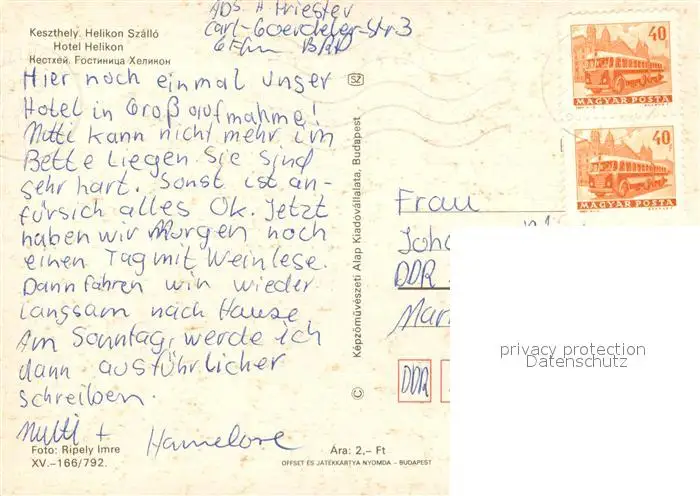 Keszthely. Helikon Szálló
Hotel Helikon
Кестхей. Гостиница Хеликон
Abs. H. Friester
Carl-Goerdeler-Str. 3
6 Ffm BRD
Hier noch einmal unser
Hotel in Großaufmahme!
Mutti kann nicht mehr im
Bette liegen Sie sind
sehr hart. Sonst ist an-
fürsich alles Ok. Jetzt
haben wir Morgen noch
einen Tag mit Weinlese.
Dann fahren win wieder
langsam nach Hause
Am Sonntag, werde ich
dann ausführlicher
schreiben.
Mutti + Hannelore
Foto: Ripely Imre
XV.–166/792.
Ára: 2,– Ft
OFFSET ÉS JÁTÉKKÁRTYA NYOMDA – BUDAPEST
SZ
© Képzőművészeti Alap Kiadóvállalata, Budapest
40
MAGYAR POSTA
40
MAGYAR POSTA
Frau
DDR
DDR
privacy protection
Datenschutz